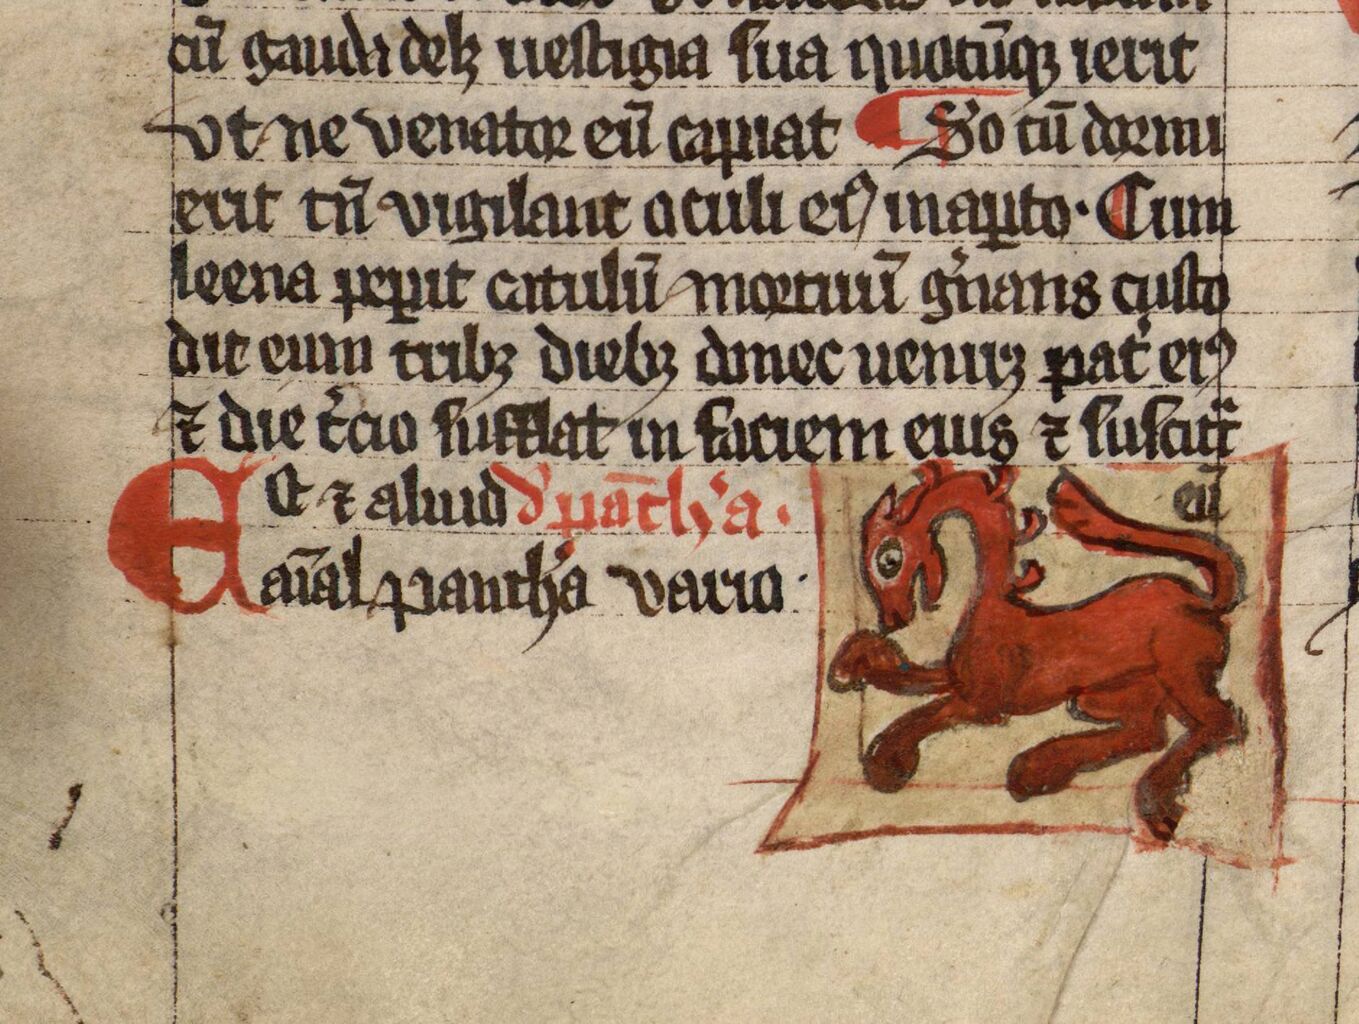 cū̄ gauda delꝫ uestigia sua quocūqꝫ ierit
vt ne venator eū capiat ¶ Sꝫo cū dormi
erit tn̄ vigilant oculi eiꝰ in aꝑto · Cum
leena peꝑit catulū mortuū gͥnans custo
dit eum tribꝫ diebꝫ donec ueniꝫ pat̾ eiꝰ
⁊ die t̾cio sufflat in faciem eius ⁊ suscitᷓ
eū
Et ⁊ aliud d̾ pāth̾a ·
aīal panth̾a vario ·